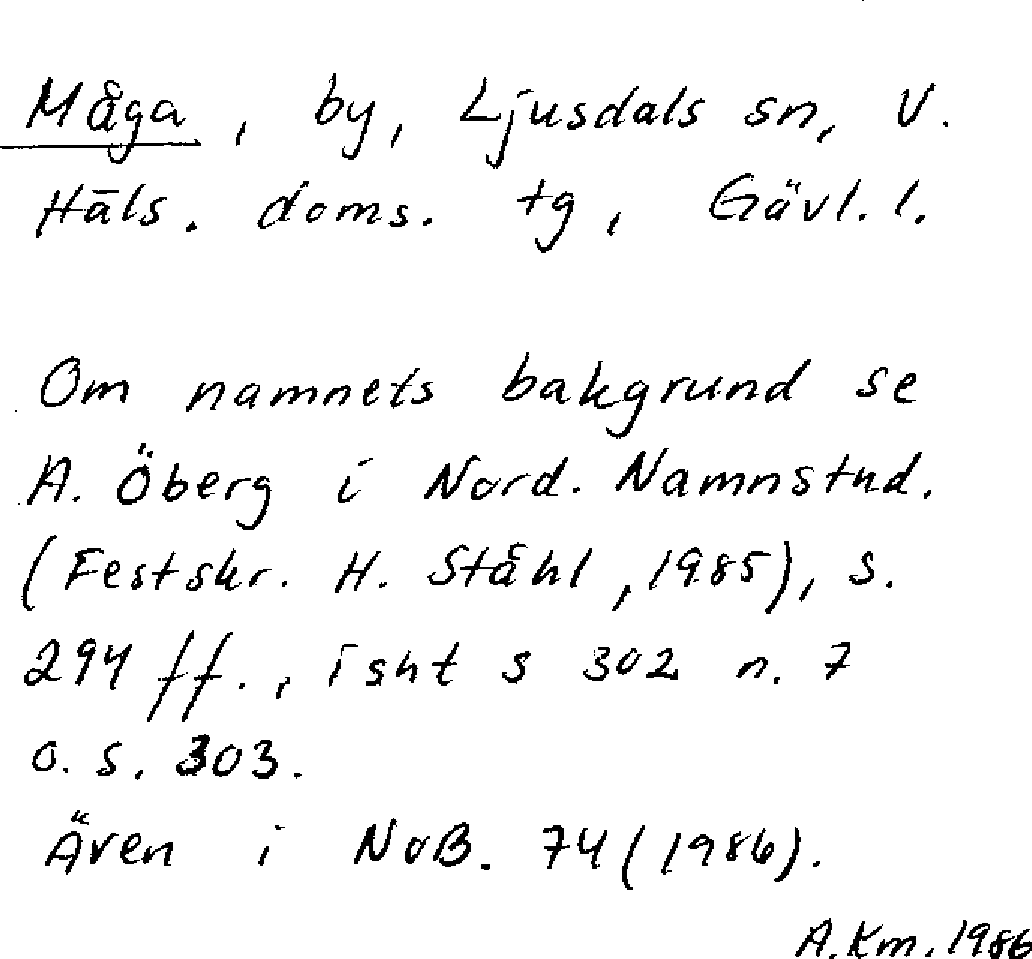 Måga, by, Ljusdals sn, V.
Häls. doms. tg, Gävl. l.
Om namnets bakgrund se
A. Öberg i Nord. Namnstud.
(Festskr. H. Ståhl, 1985), s.
294 ff., isht s 302 n. 7
o. s. 303.
Även i NoB. 74 (1986).
A. Km. 1986